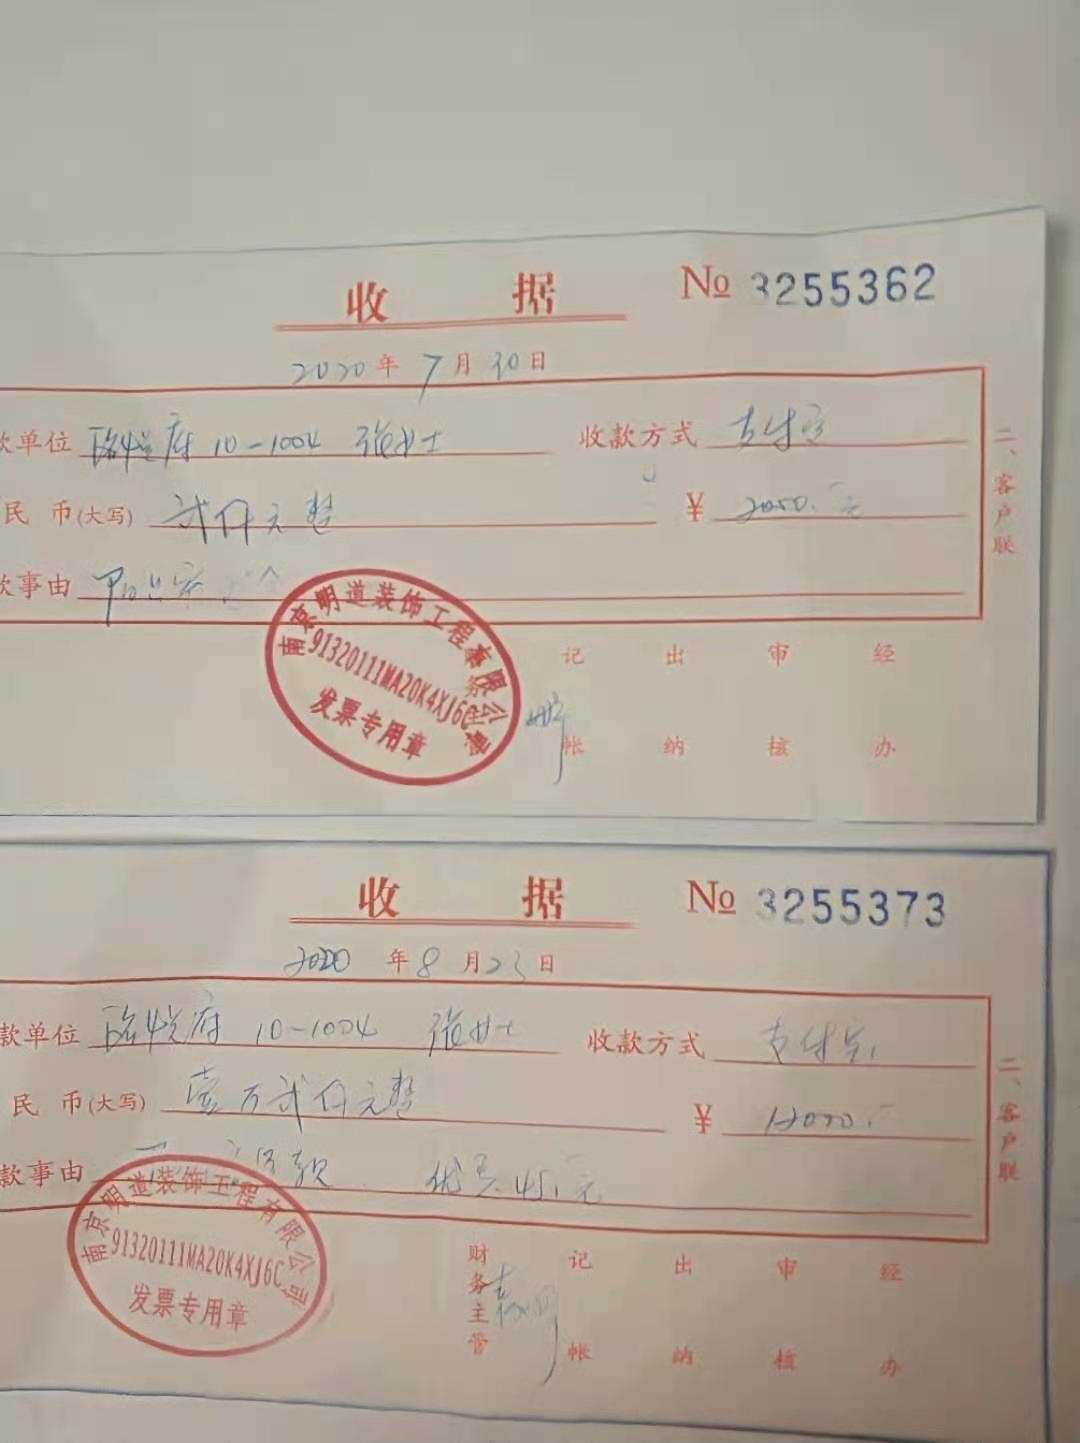 收 据 No 3255362
2020年7月30日
款单位 临悦府 10-1004 张女士 收款方式 支付宝
民 币(大写) 贰仟元整 ¥ 2000.元
款事由
二、客户联
南京明道装饰工程有限公司
91320111MA20K4XJ6C
发票专用章
记帐 出纳 审核 经办
收 据 No 3255373
2020年8月23日
款单位 临悦府 10-1004 张女士 收款方式 支付宝
民 币(大写) 壹万贰仟元整 ¥ 12000.
款事由 款 优惠45元
二、客户联
南京明道装饰工程有限公司
91320111MA20K4XJ6C
发票专用章
财务主管 记帐 出纳 审核 经办